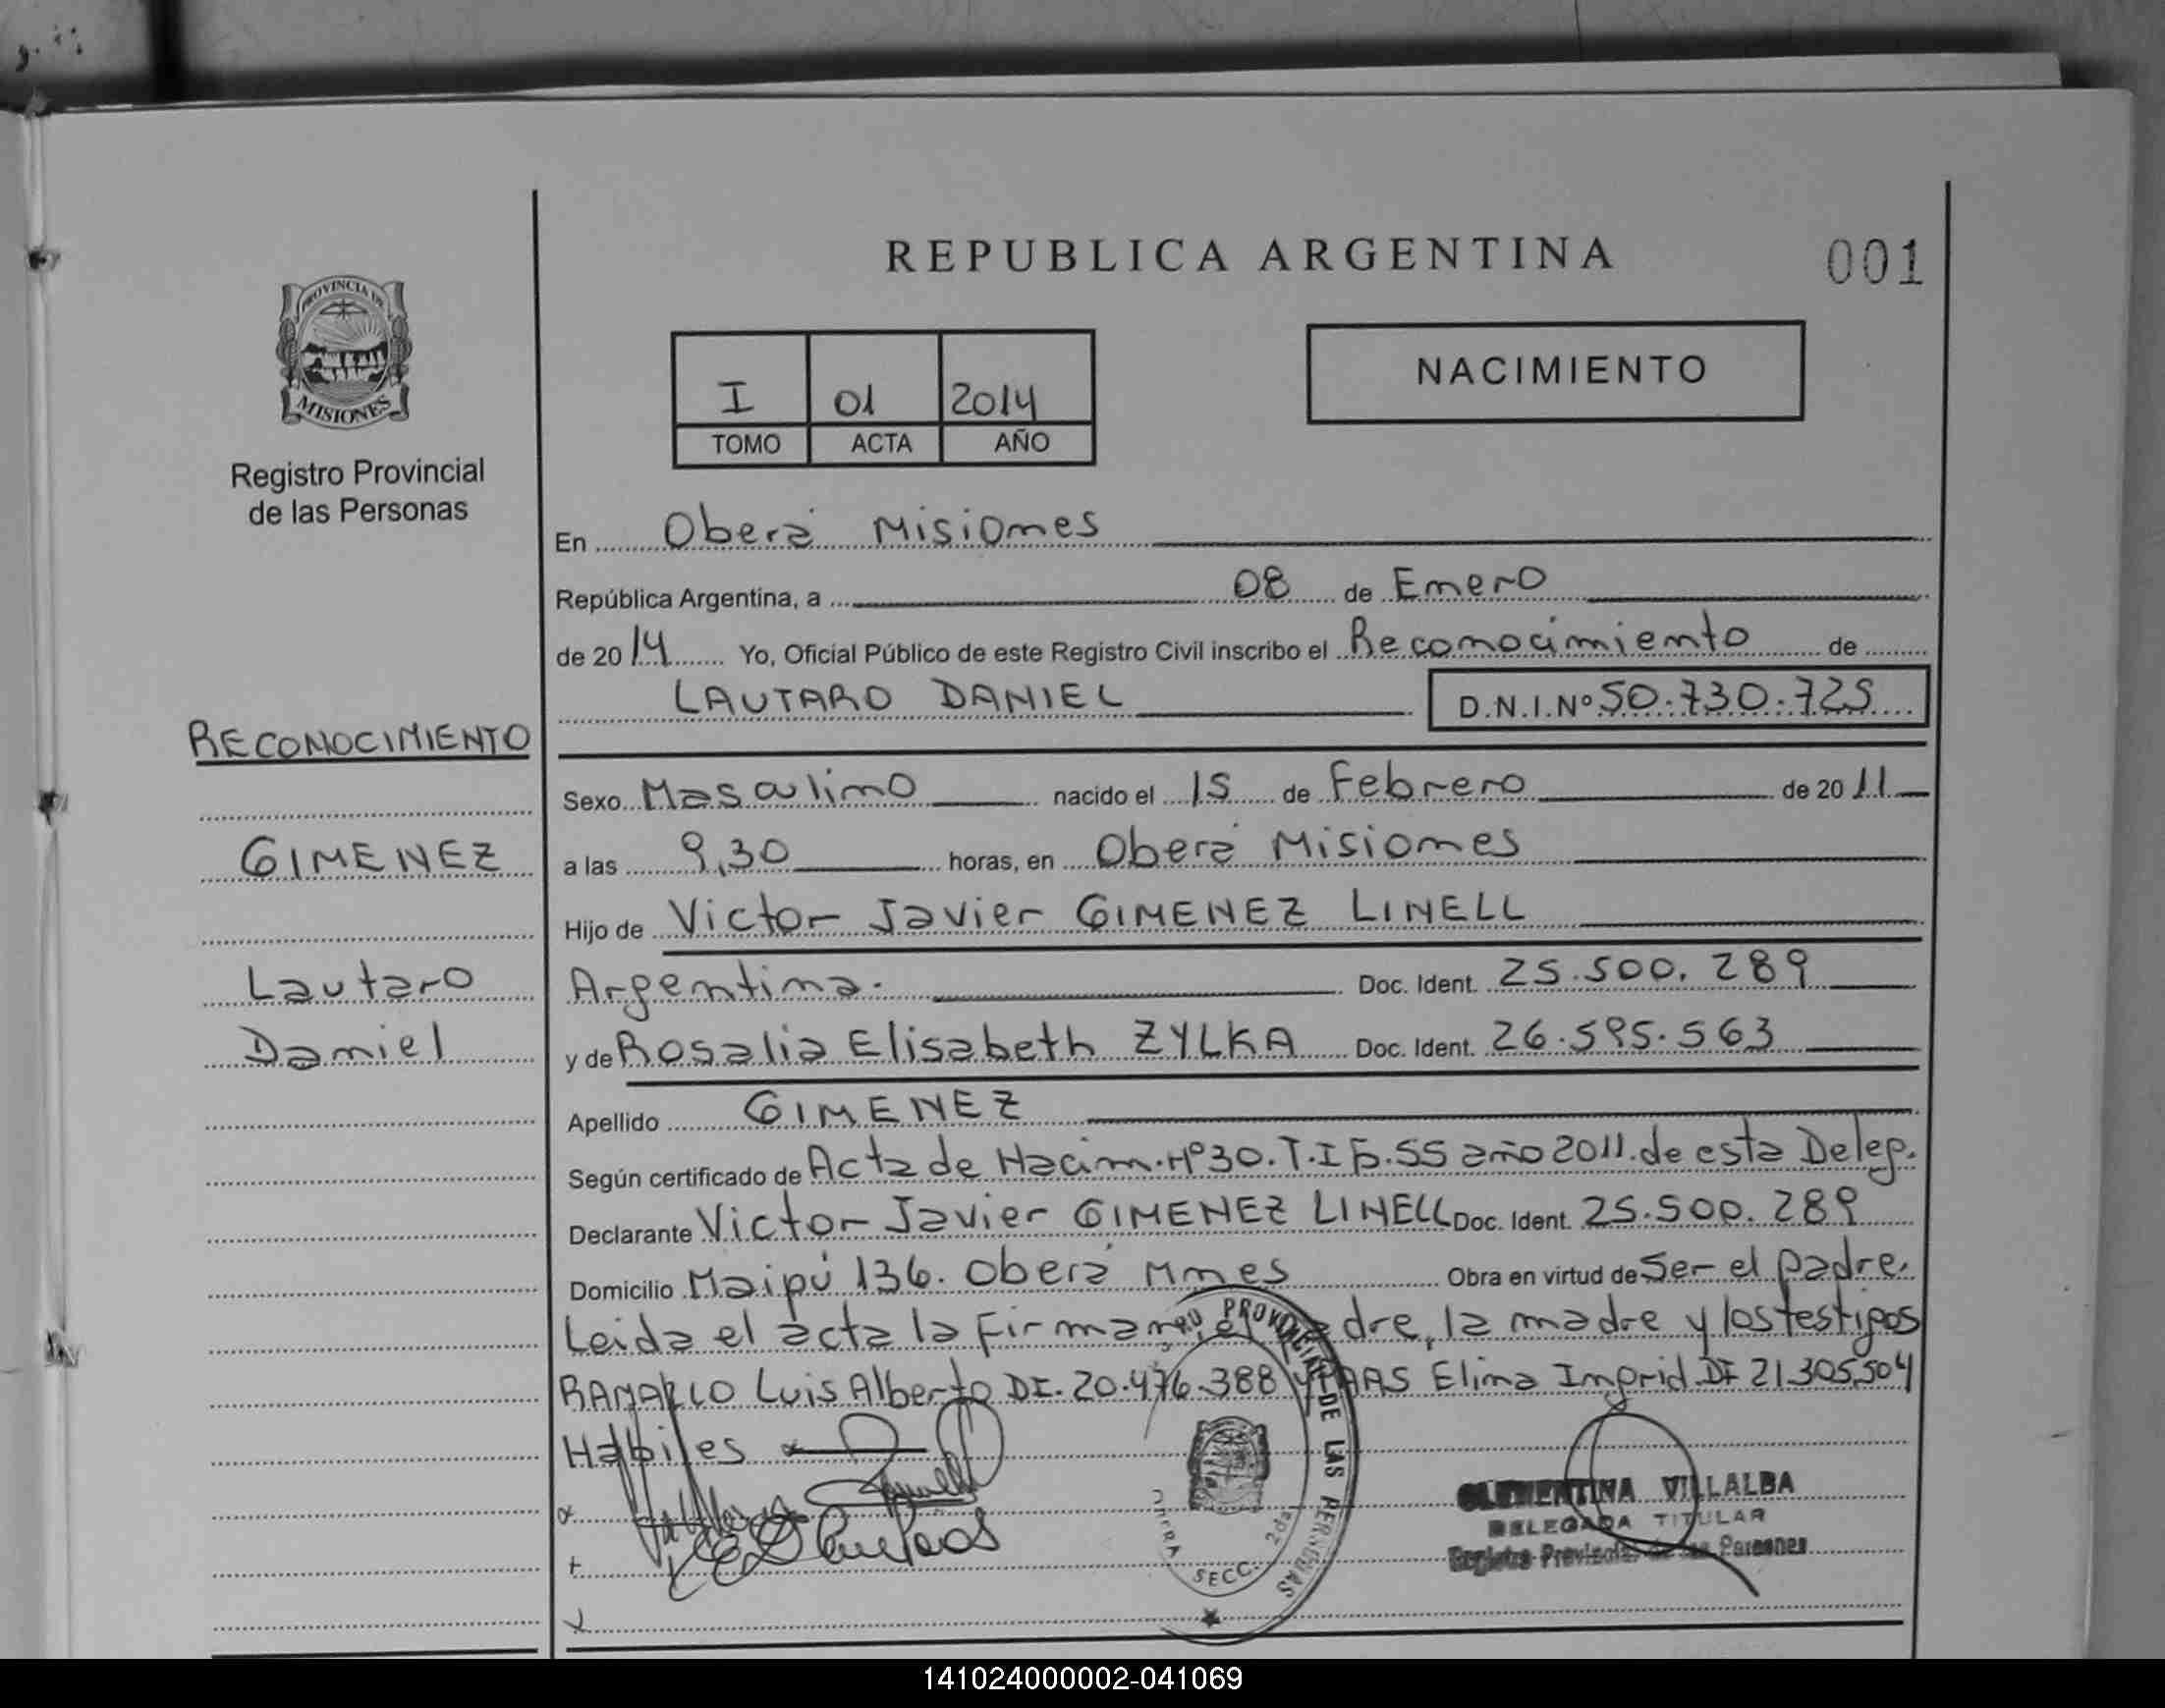 REPUBLICA ARGENTINA
001
PROVINCIA DE
MISIONES
Registro Provincial
de las Personas
NACIMIENTO
I 01 2014
TOMO ACTA AÑO
En Oberá Misiones
República Argentina, a 08 de Enero
de 2014 Yo, Oficial Público de este Registro Civil inscribo el Reconocimiento de
LAUTARO DANIEL D.N.I.Nº 50.730.725
RECONOCIMIENTO
Sexo Masculino nacido el 15 de Febrero de 2011
GIMENEZ
a las 9,30 horas, en Oberá Misiones
Hijo de Victor Javier GIMENEZ LINELL
Lautaro
Argentina. Doc. Ident. 25.500.289
Daniel
y de Rosalia Elisabeth ZYLKA Doc. Ident. 26.595.563
Apellido GIMENEZ
Según certificado de Acta de Nacim. Nº30.T.I F.55 año 2011 de esta Deleg.
Declarante Victor Javier GIMENEZ LINELL Doc. Ident. 25.500.289
Domicilio Maipú 136. Oberá Mnes Obra en virtud de Ser el padre.
Leida el acta la Firman, el padre, la madre y los testigos
Luis Alberto DI. 20.476.388 y Elina Ingrid DI 21.305.504
Habiles
CLEMENTINA VILLALBA
DELEGADA TITULAR
Registro Provincial de las Personas
PROVINCIAL DE LAS PERSONAS
SECC. 2da
141024000002-041069